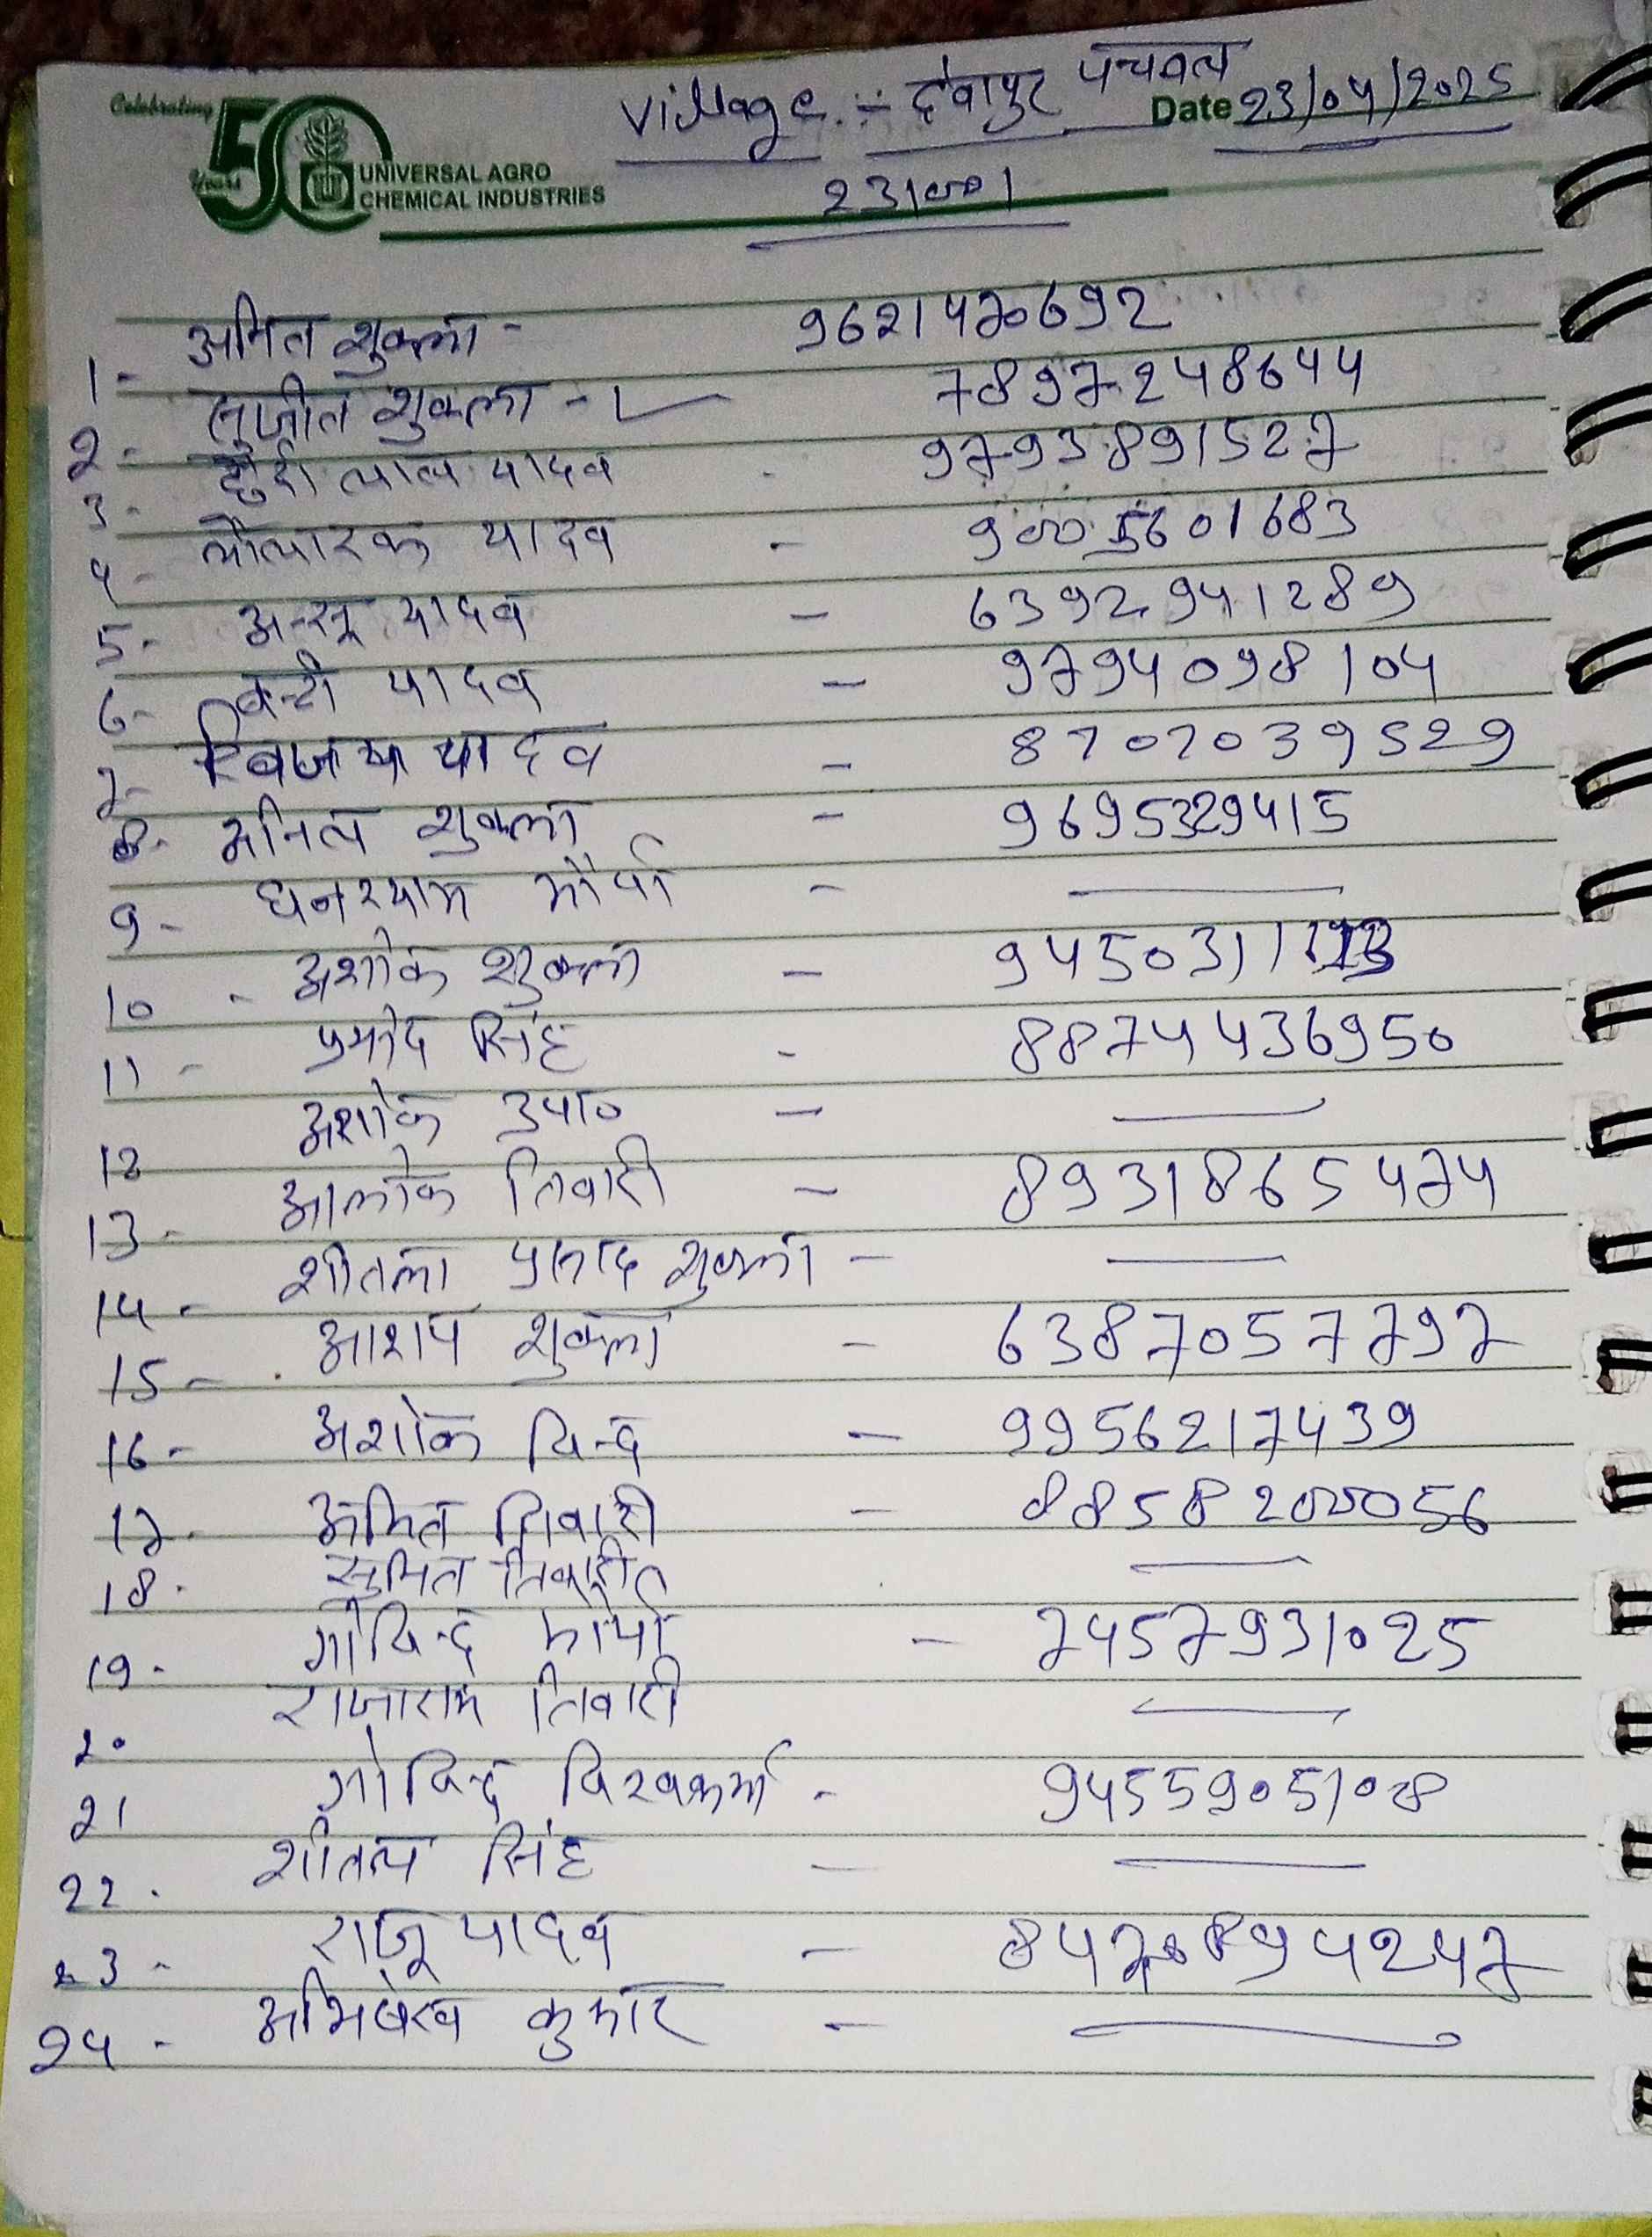 Celebrating
50
Years
UNIVERSAL AGRO
CHEMICAL INDUSTRIES
Village :- देवापुर पचवल
Date 23/04/2025
231001
1- अमित शुक्ला - 9621470692
2- सुजीत शुक्ला - 7897248644
3- लाल यादव - 9793891527
4- यादव - 9005601683
5- अन्सू यादव - 6392941289
6- बन्टी यादव - 9794098104
7- विजय यादव - 8707039529
8- अनिल शुक्ला - 9695329415
9- घनश्याम मौर्या - —
10 - अशोक शुक्ला - 94503111
11 - प्रमोद सिंह - 8874436950
12 अशोक उपा० - —
13 - आलोक तिवारी - 8931865474
14 - शीतला प्रसाद शुक्ला - —
15 - आशय शुक्ला - 6387057797
16 - अशोक विन्द - 9956217439
17 - अमित तिवारी - 8858200056
18 - सुमित तिवारी —
19 - गोविन्द मौर्या - 7457931025
20 राजाराम तिवारी —
21 गोविन्द विश्वकर्मा - 9455905108
22 - शीतल सिंह - —
23 - राजू यादव -
24 - अभिषेख कुमार - —